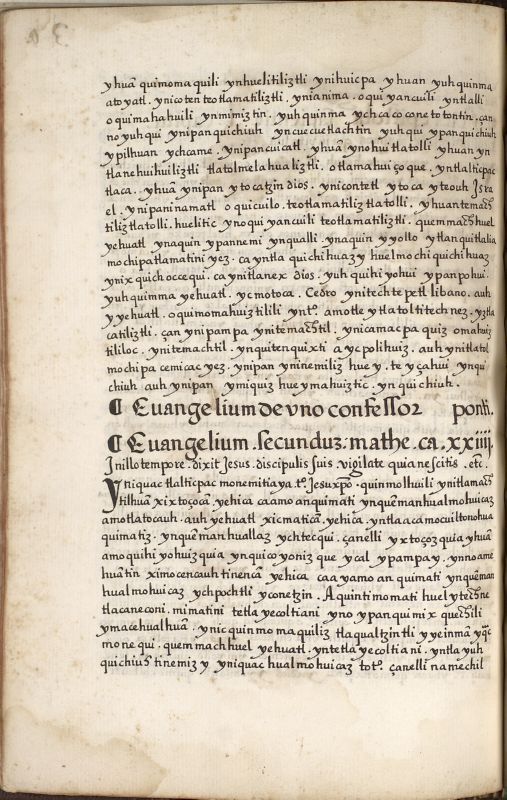 yhuā quimoma quili ynhuelitiliztli ynihuicpa yhuan yuhquinma
atoyatl . ynicoten teotlamatiliztli . ynianima . oqui yancuili yntlalli
oquimahahuili ynmimiztin . yuhquinma ychcacoconetotontin . çan
no yuhqui ynipanquichiuh yncuecuetlachtin yuhqui ypanquichiuh
ypilhuan ychcame . ynipancuicatl . yhuā ynohuitlatolli yhuan yn
tlanehuihuiliztli tlatolmelahualiztli . otlamahuiçoque . yntlalticpac
tlaca . yhuā ynipan ytocatzin dios . ynicontetl ytoca yteouh Isra
el . ynipaninamatl oquicuilo . teotlamatiliztlatolli . yhuantemach
tiliztlatolli . huelitic ynoqui yancuili teotlamatiliztli . quemmachhuel
yehuatl ynaquin ypannemi ynqualli . ynaquin yyollo ytlanquitlalia
mochipatlamatini yez . ca yntla quichihuazy huelmochiquichihuaz
ynixquichoccequi . caynitlanex dios . yuhquihiyohui ypanpohui
yuhquimma yehuatl . ycmotoca . Cedro ynitechtepetl libano . auh
yyehuatl . oquimomahuiztilili ynto . amotle ytlatoltitechnez . yztla
catiliztli . çan ynipampa ynitemachtil . ynicamacpa quiz omahuiz
tililoc . ynitemachtil . ynquitenquixti aycpolihuiz . auh ynitlatol
mochipa cemicac yez . ynipan yninemiliz huey . te yçahui ynqui
chiuh auh ynipan ymiquiz hueymahuiztic . ynquichiuh .
¶ Euangelium de vno confessor ponti.
¶ Euangelium . secunduz . mathe . ca . xxiiij.
Inillo tempore . dixit Jesus . discipulis suis vigilate quia nescitis . etc .
Yniquac tlalticpac monemitiaya to. Jesuxpo . quinmolhuili ynitlamach
tilhuā xixtoçoca yehica caamo anquimati ynquemanhualmohuicaz
amotlatocauh . auh yehuatl xicmatica . yehica . yntlacamocuiltonohua
quimatiz . ynquemanhuallaz ychtecqui . çanelli yxtoçoz quia yhuā
amoquihiyohuizquia ynquicoyoniz que ycal ypampay . ynnoamé
huātin ximocencauhtinencā yehica caayamo anquimati ynqueman
hualmohuicaz ychpochtli yconetzin . A quintimomati huelytechne
tlacaneconi . mimatini tetlayecoltiani yno ypanquimix quechili
ymacehualhuā . ynicquinmomaquiliz tlaqualtzintli yyeinmā yqc
monequi . quemmachhuel yehuatl . yntetlayecoltiani . yntla yuh
quichiuhtinemizy yniquac hualmohuicaz toto . çanelli namechil